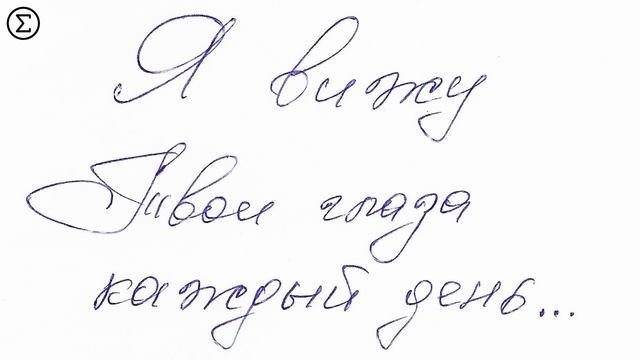 Σ
Я вижу
Твои глаза
каждый день...